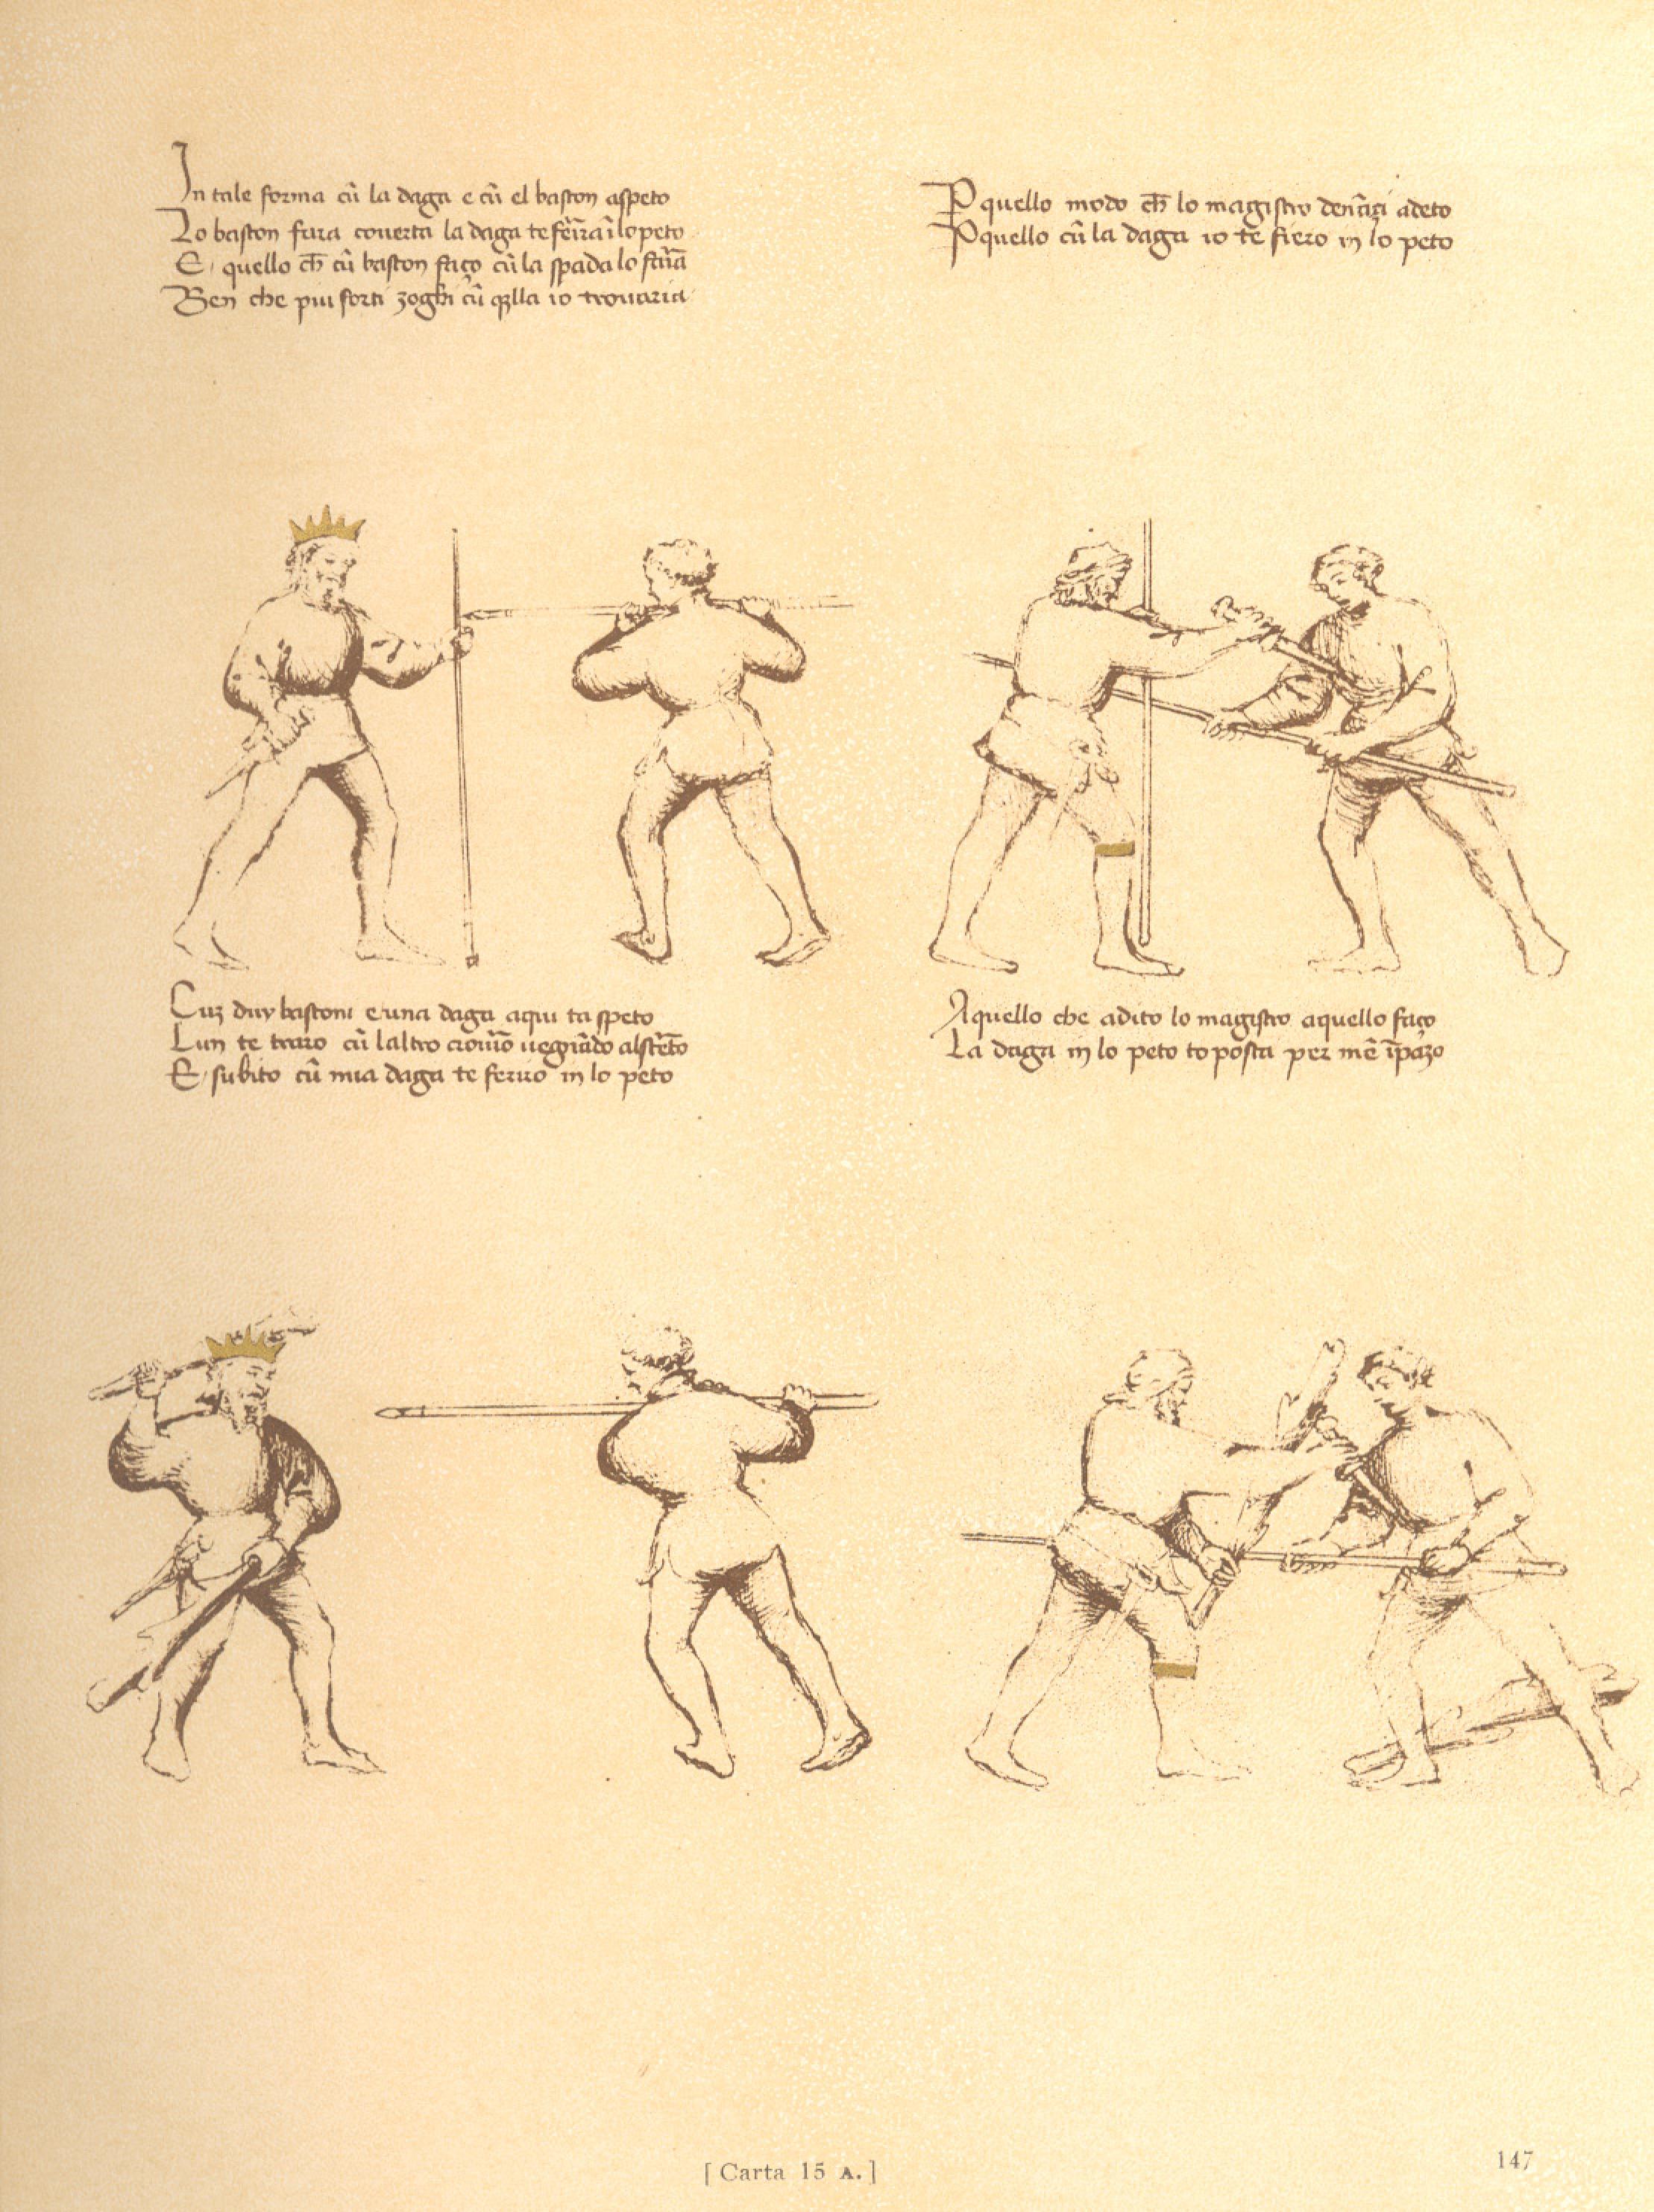 In tale forma cũ la daga e cũ el baston aspeto
Lo baston fara couerta la daga te ferirà ĩ lo peto
E quello ch̃ cũ baston faço cũ la spada lo faria
Ben che piu forti zoghi cũ q̃lla io trouaria
P quello modo ch̃ lo magistro denãçi a deto
P quello cũ la daga io te fiero in lo peto
Cuz duy bastoni e una daga aqui ta speto
Lun te traro cũ laltro crouirõ uegnãdo al streto
E subito cũ mia daga te feriro in lo peto
Aquello che a dito lo magistro aquello faço
La daga in lo peto to posta per mẽ ĩpazo
[Carta 15 A.]
147